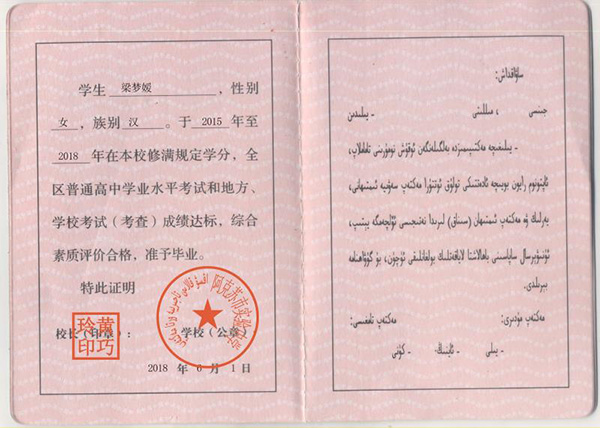 学生 梁梦媛 ，性别
女 ，族别 汉 。于 2015 年至
2018 年在本校修满规定学分，全
区普通高中学业水平考试和地方、
学校考试（考查）成绩达标，综合
素质评价合格，准予毕业。
特此证明
校长（印章）： 学校（公章）
玲黄
印巧
阿克苏市实验中学
2018 年 6 月 1 日
ساۋاقداش:
جىنسى ، مىللىتى ـ يىلىدىن
ـ يىلىغىچە مەكتىپىمىزدە بەلگىلەنگەن ئوقۇش نومۇرىنى تاماملاپ،
ئاپتونوم رايون بويىچە ئادەتتىكى تولۇق ئوتتۇرا مەكتەپ سەۋىيە ئىمتىھانى،
يەرلىك ۋە مەكتەپ ئىمتىھان (سىناق) لىرىدا نەتىجىسى ئۆلچەمگە يېتىپ،
ئۇنىۋېرسال ساپاسىنى باھالاشتا لاياقەتلىك بولغانلىقى ئۈچۈن، بۇ گۇۋاھنامە
بېرىلدى.
مەكتەپ مۇدىرى: مەكتەپ تامغىسى:
ـ يىلى ـ ئاينىڭ ـ كۈنى